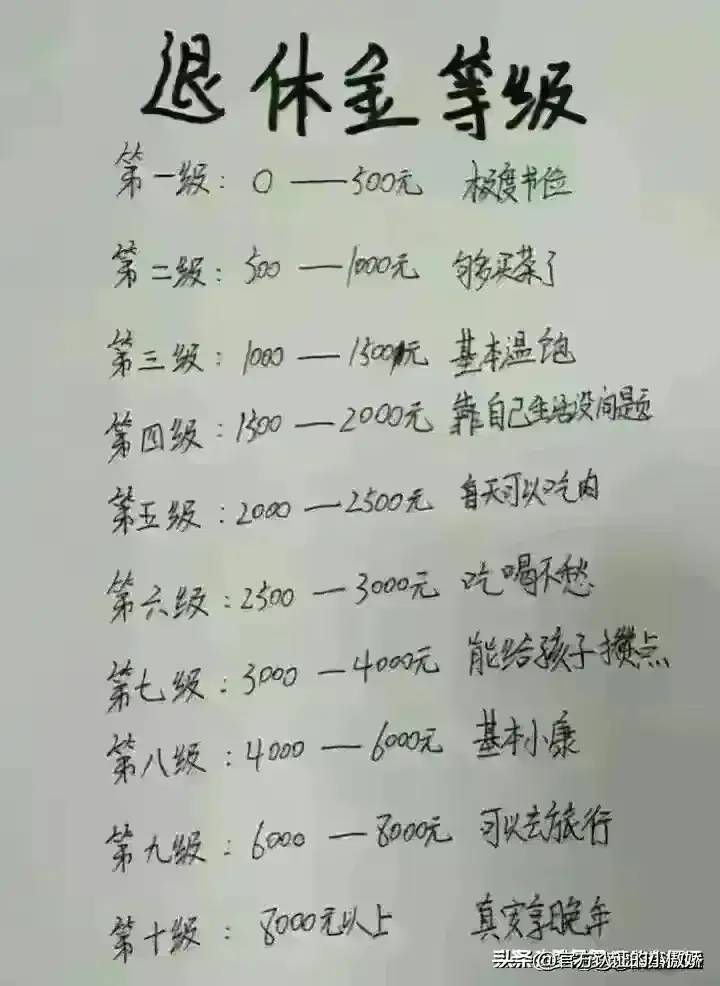 退休金等级
第一级：0——500元 极度节俭
第二级：500——1000元 够买菜了
第三级：1000——1500元 基本温饱
第四级：1500——2000元 靠自己生活没问题
第五级：2000——2500元 每天可以吃肉
第六级：2500——3000元 吃喝不愁
第七级：3000——4000元 能给孩子攒点
第八级：4000——6000元 基本小康
第九级：6000——8000元 可以去旅行
第十级：8000元以上 真实享晚年
头条@官方认证的小傲娇